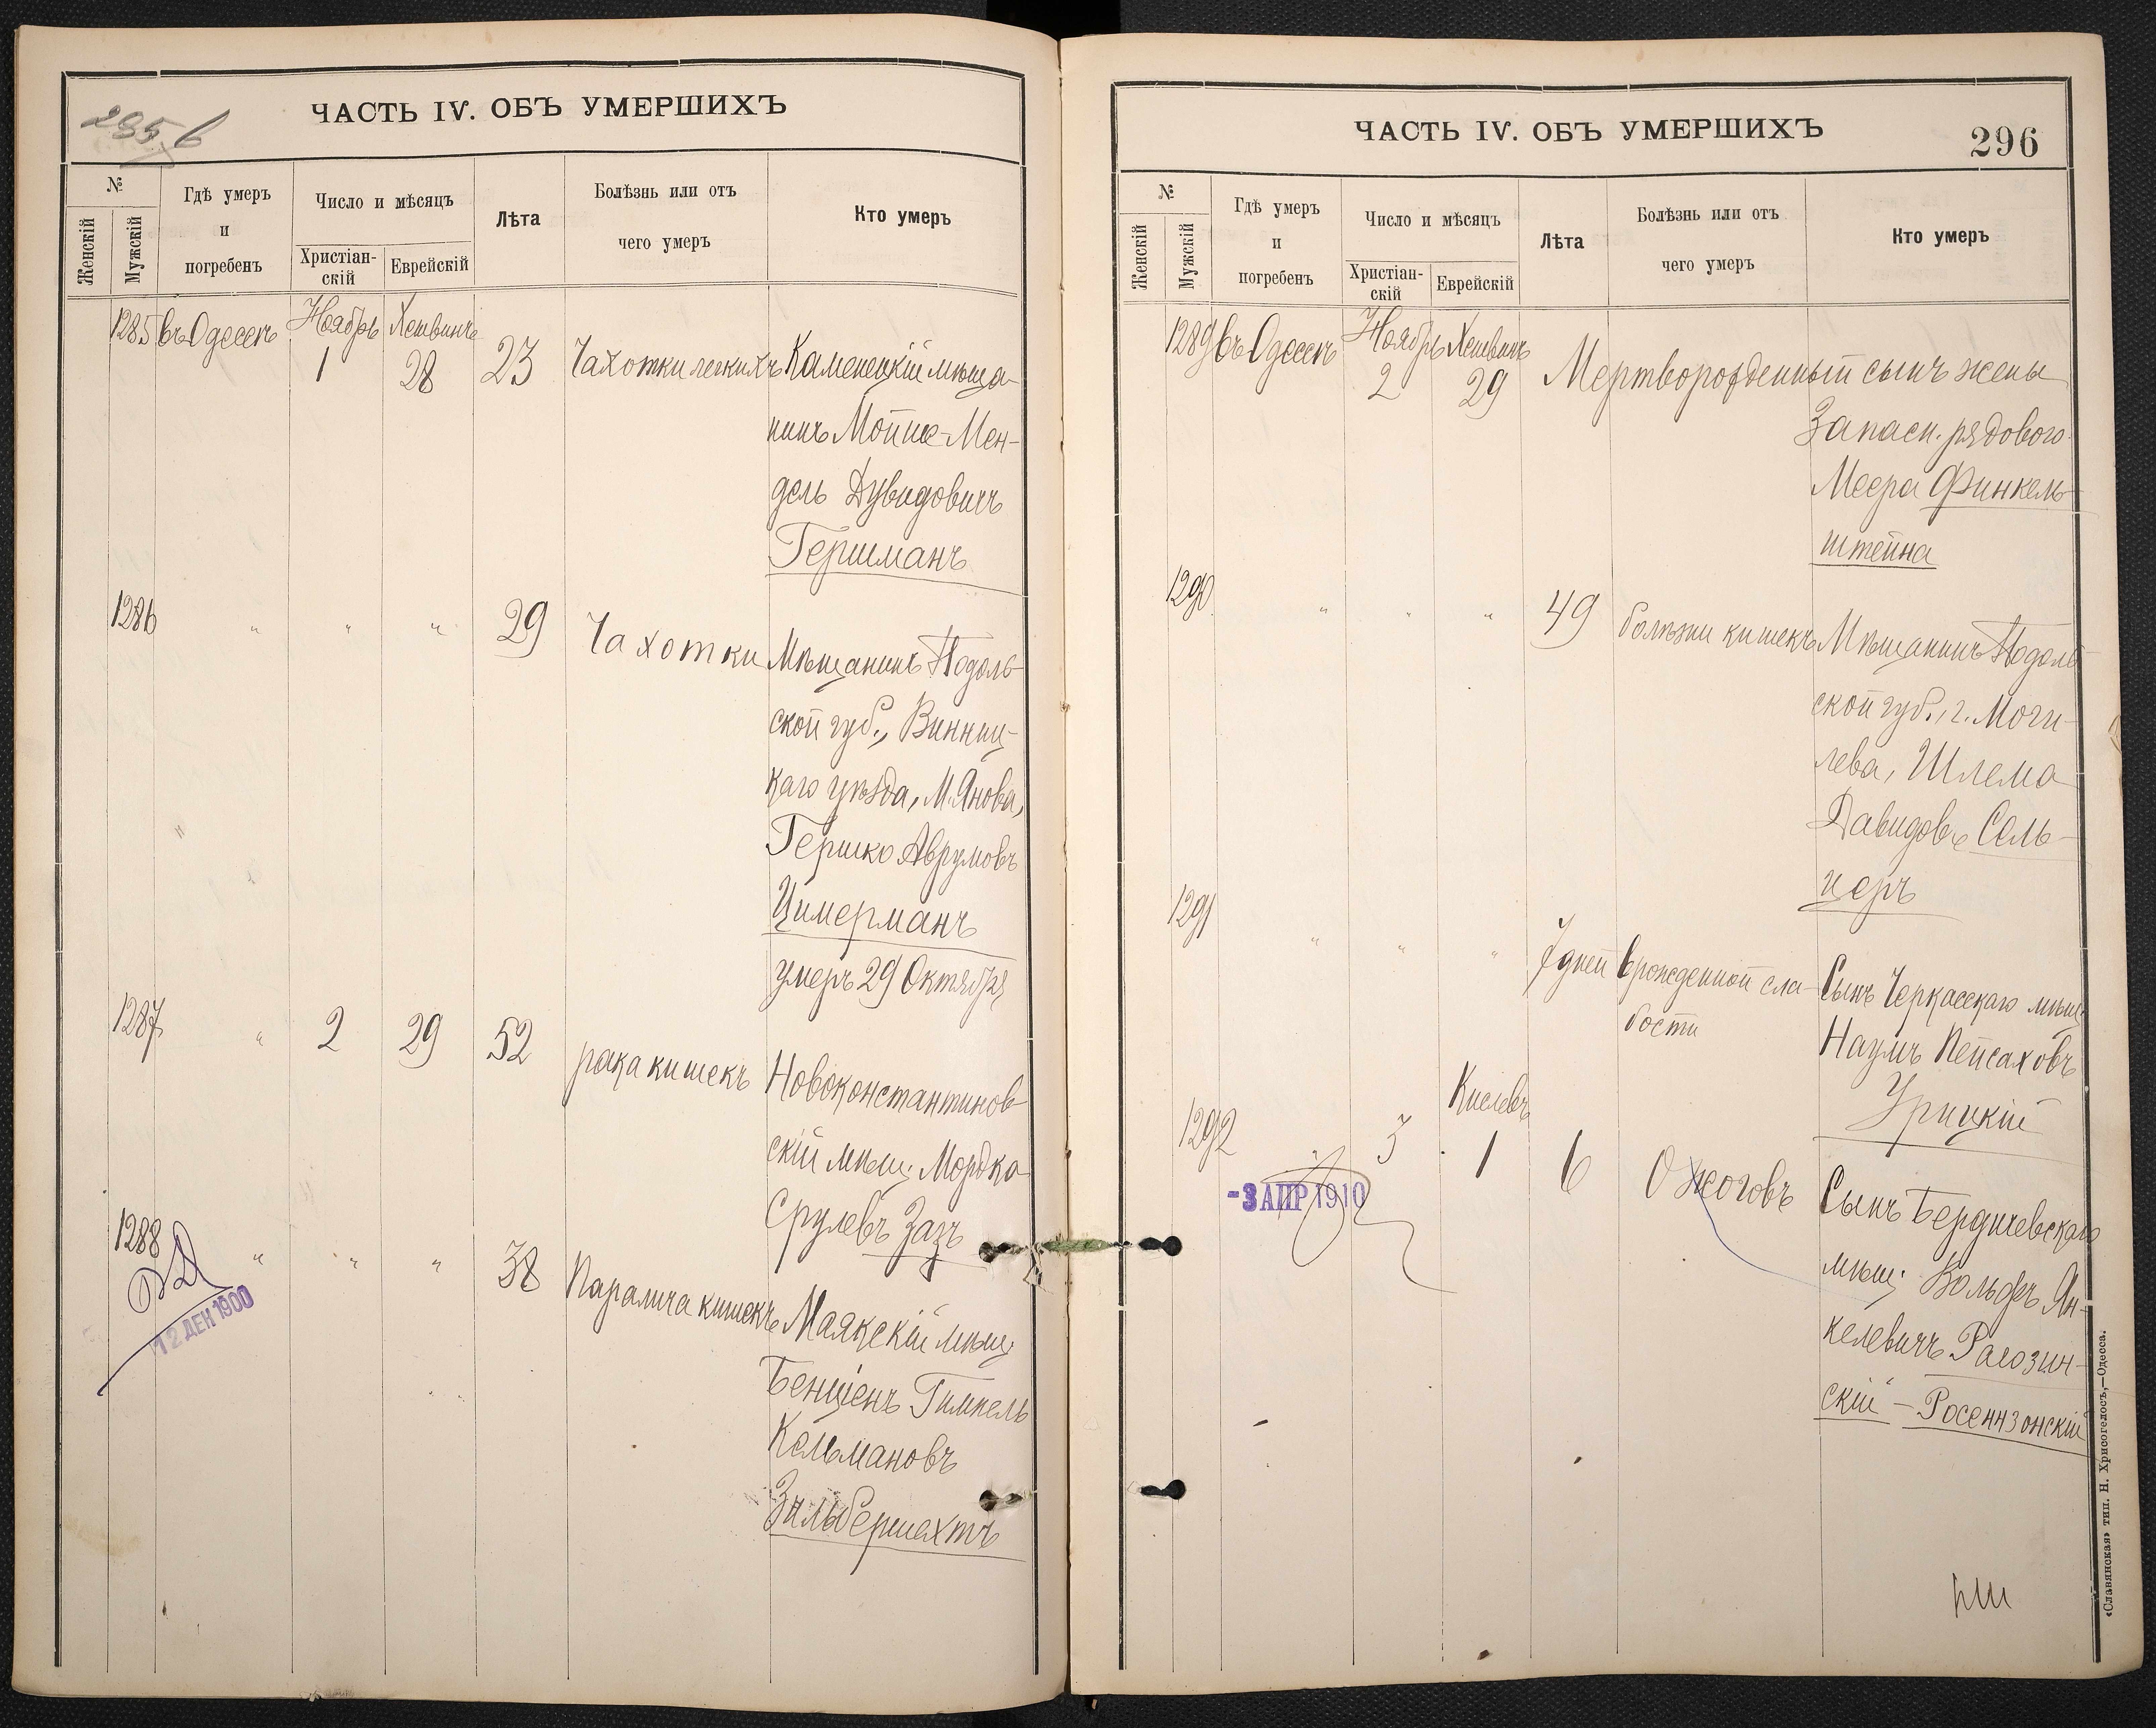 295 б
ЧАСТЬ IV. ОБЪ УМЕРШИХЪ
№
Женскій
Мужскій
Гдѣ умеръ
и
погребенъ
Число и мѣсяцъ
Христіан-
скій
Еврейскій
Лѣта
Болѣзнь или отъ
чего умеръ
Кто умеръ
1285 въ Одессѣ Ноябрь Хешвинъ
1 28 23 Чахотки легкихъ Каменецкій мѣща-
нинъ Мойше-Мен-
дель Дувидовичъ
Гершманъ
1286 " " " 29 Чахотки Мѣщанинъ Подоль-
ской губ., Винниц-
каго уѣзда, М. Янова,
Гершко Аврумовъ
Цимерманъ
умеръ 29 Октября
1287 " 2 29 52 рака кишекъ Новоконстантинов-
скій мѣщ. Мордко
Срулевъ Зазъ
1288 " " " 38 Паралича кишекъ Маякскій мѣщ.
12 ДЕК 1900
Бенціенъ Гимпель
Кельмановъ
Зильбершехтъ
ЧАСТЬ IV. ОБЪ УМЕРШИХЪ
296
№
Женскій
Мужскій
Гдѣ умеръ
и
погребенъ
Число и мѣсяцъ
Христіан-
скій
Еврейскій
Лѣта
Болѣзнь или отъ
чего умеръ
Кто умеръ
1289 въ Одессѣ Ноябрь Хешвинъ
2 29 Мертворожденный сынъ жены
Запасн. рядового
Меера Финкель-
штейна
1290 " " " 49 болѣзни кишекъ Мѣщанинъ Подоль-
ской губ., г. Моги-
лева, Шлема
Давидовъ Сель-
церъ
1291 " " " 7 дней врожденной сла-
бости
Сынъ Черкасскаго мѣщ.
Наумъ Пейсаховъ
Урицкій
Кислевъ
1292 " 3 1 6 Ожоговъ Сынъ Бердичевскаго
-3 АПР 1910
мѣщ. Вольфъ Ян-
келевичъ Рагозин-
скій - Росеннзонскій
«Славянская» тип. Н. Хрисогелосъ,—Одесса.